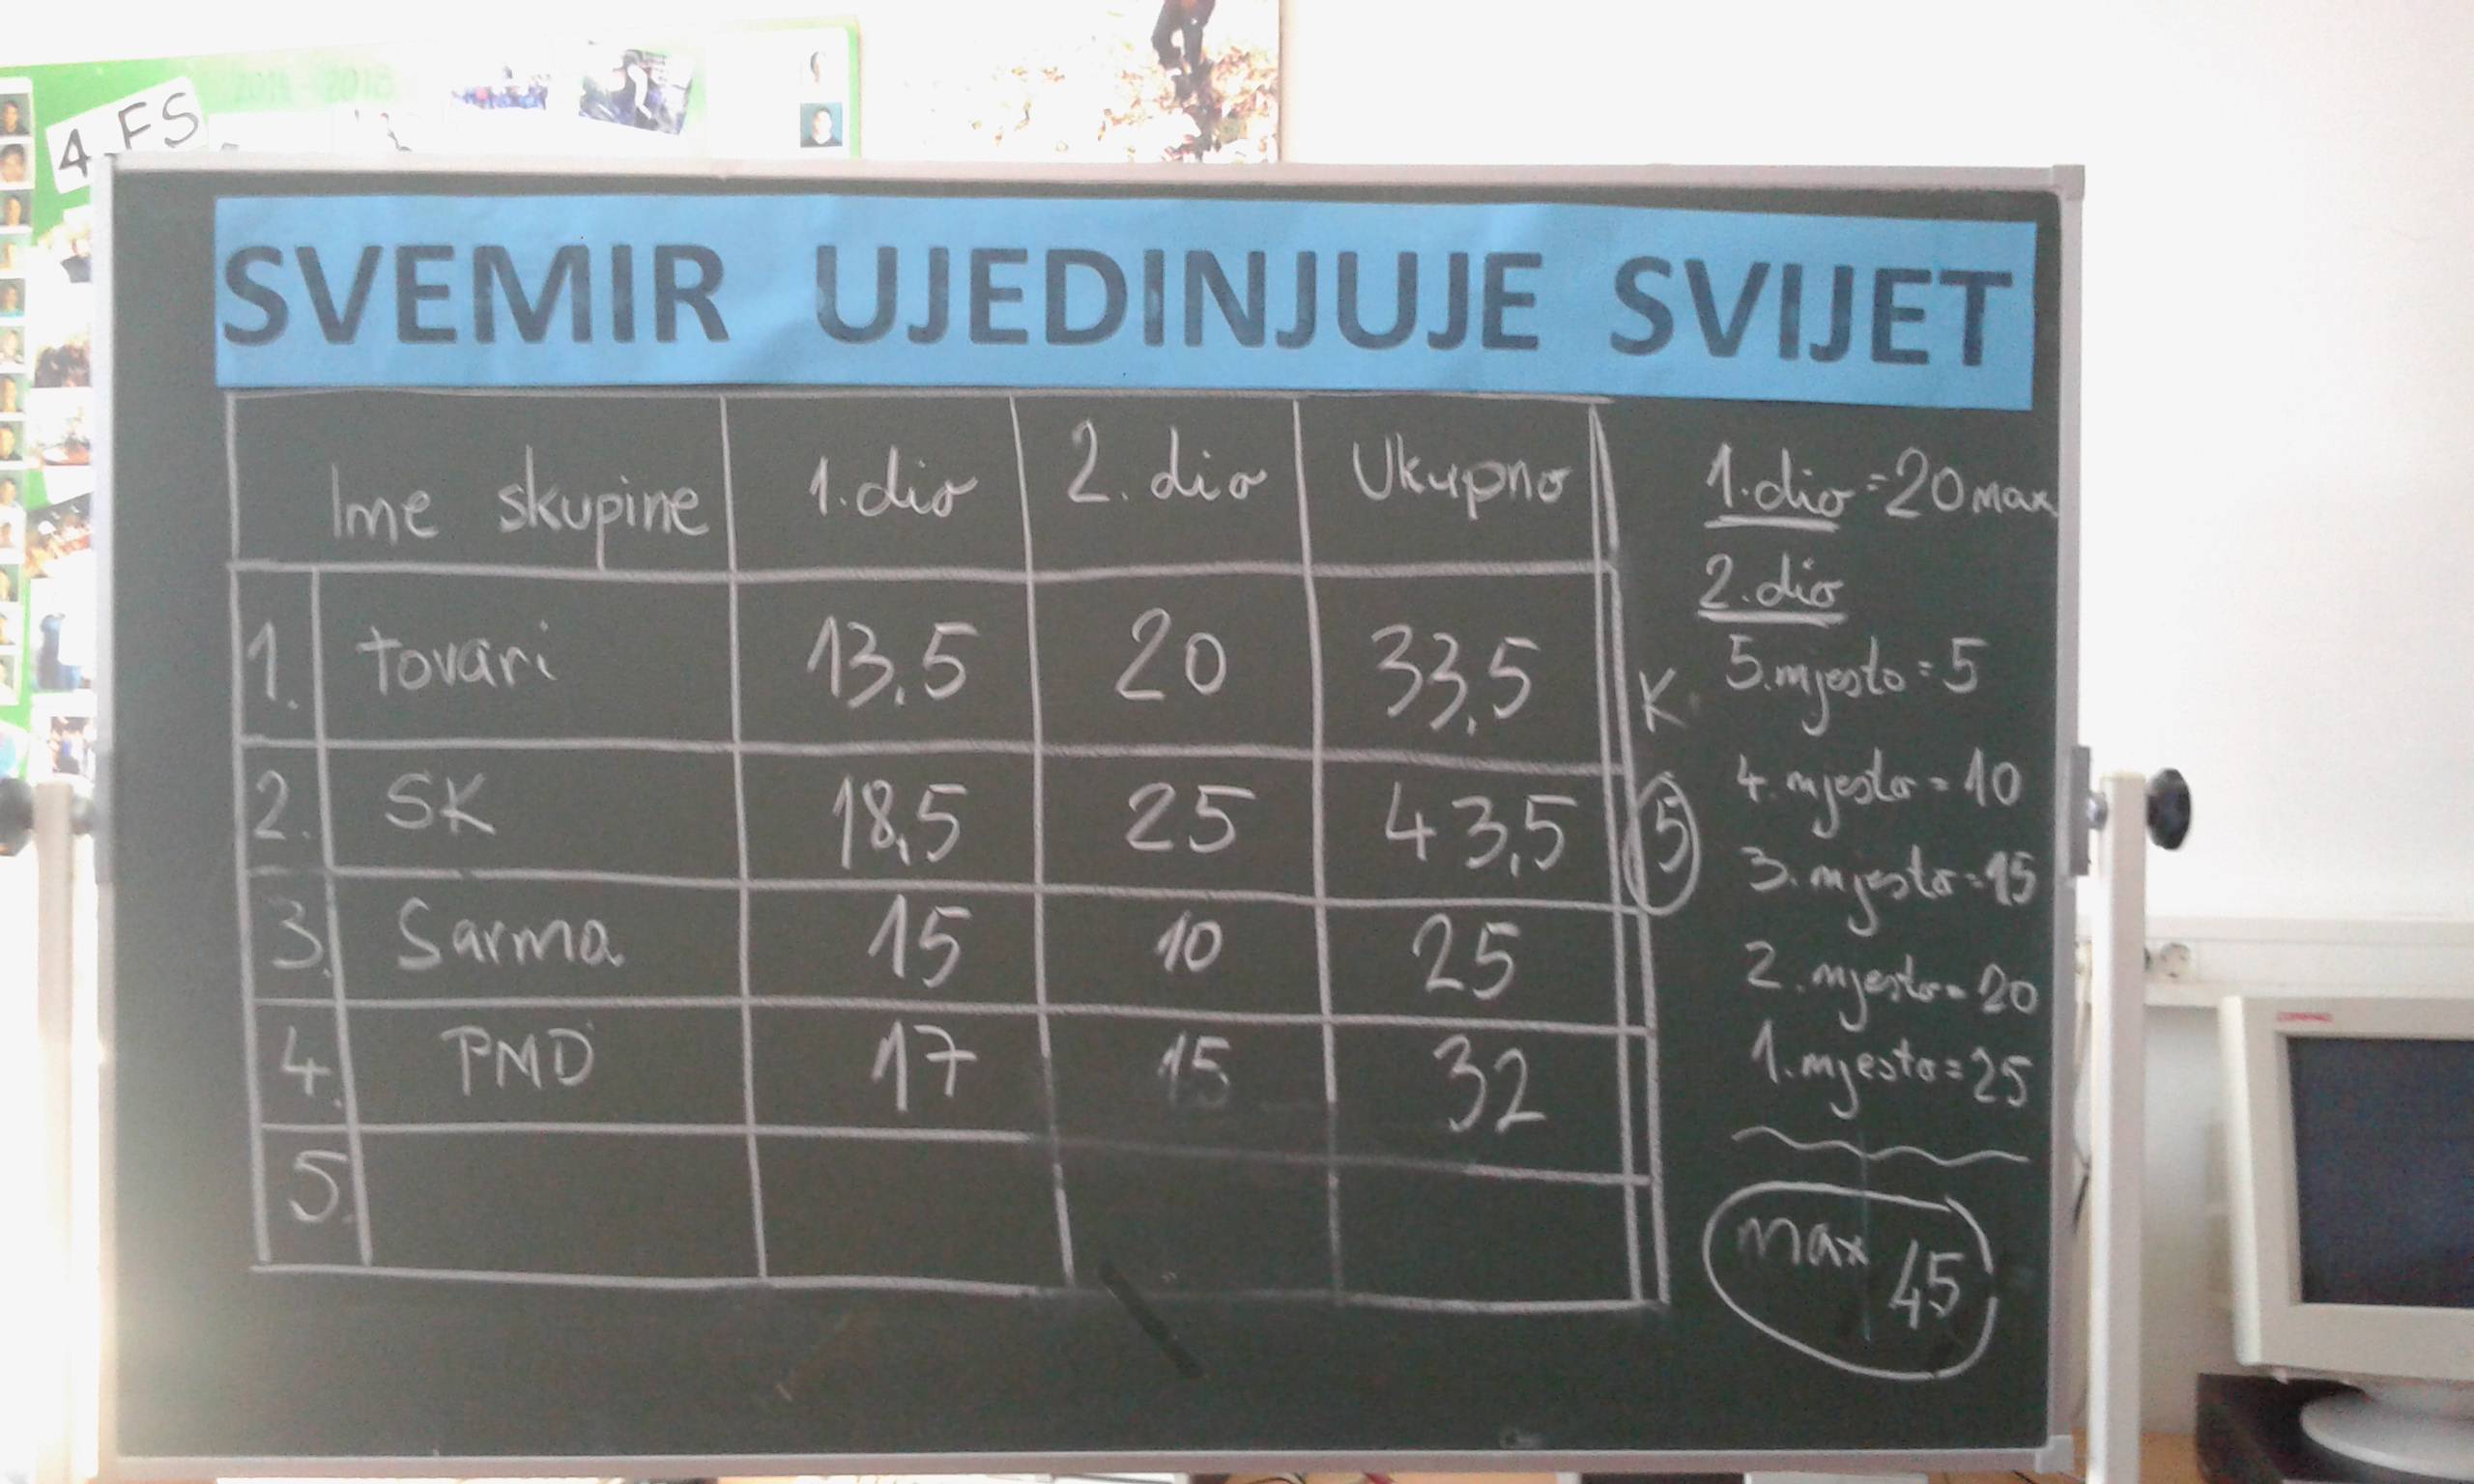 2014 - 2018
4.FS
SVEMIR UJEDINJUJE SVIJET
Ime skupine 1. dio 2. dio Ukupno
1. tovari 13,5 20 33,5 K
2. SK 18,5 25 43,5 5
3. Sarma 15 10 25
4. PMD 17 15 32
5.
1. dio = 20 max
2. dio
5. mjesto = 5
4. mjesto = 10
3. mjesto = 15
2. mjesto = 20
1. mjesto = 25
max 45